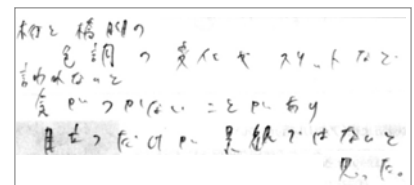 桁と橋脚の
色調の変化やスリットなど
言われないと
気がつかないことがあり
目立つだけが景観ではないと
思った。